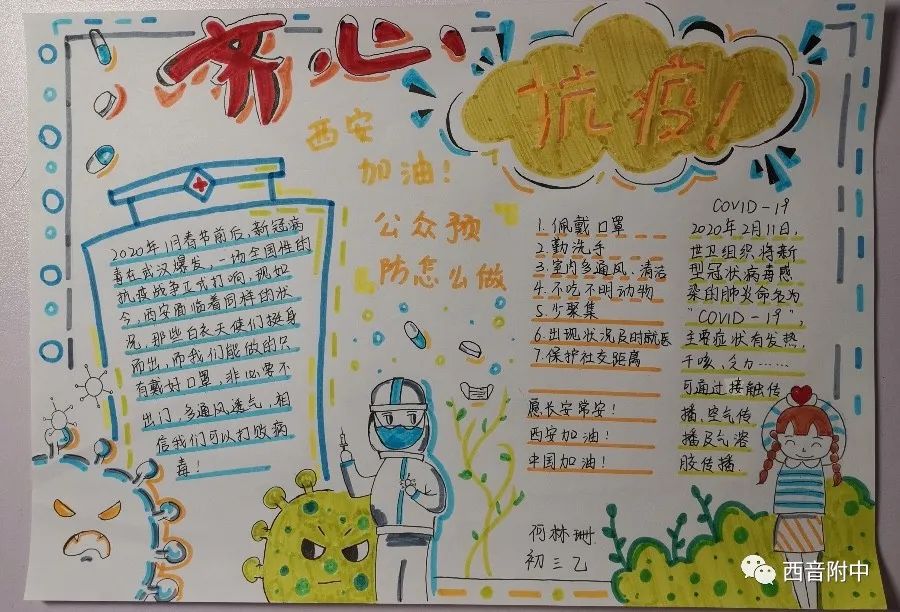 齐心
抗疫!
西安
加油!
公众预
防怎么做
2020年1月春节前后,新冠病
毒在武汉爆发,一场全国性的
抗疫战争正式打响,现如
今,西安面临着同样的状
况,那些白衣天使们挺身
而出,而我们能做的只
有戴好口罩,非必要不
出门,多通风透气,相
信我们可以打败病
毒!
1.佩戴口罩
2.勤洗手
3.室内多通风、清洁
4.不吃不明动物
5.少聚集
6.出现状况及时就医
7.保护社交距离
愿长安常安!
西安加油!
中国加油!
COVID-19
2020年2月11日,
世卫组织将新
型冠状病毒感
染的肺炎命名为
"COVID-19",
主要症状有发热,
干咳、乏力……
可通过接触传
播、空气传
播及气溶
胶传播.
何林珊
初三乙
西音附中